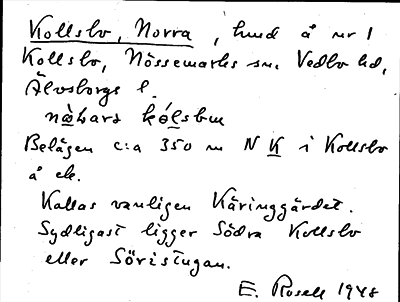 Kollsbo, Norra, hmd å nr 1
Kollsbo, Nössemarks sn. Vedbo hd,
Älvsborgs l.
nòbara kólsbm
Belägen c:a 350 m N K i Kollsbo
å ek.
Kallas vanligen Käringgärdet.
Sydligast ligger Södra Kollsbo
eller Söristugan.
E. Rosell 1948